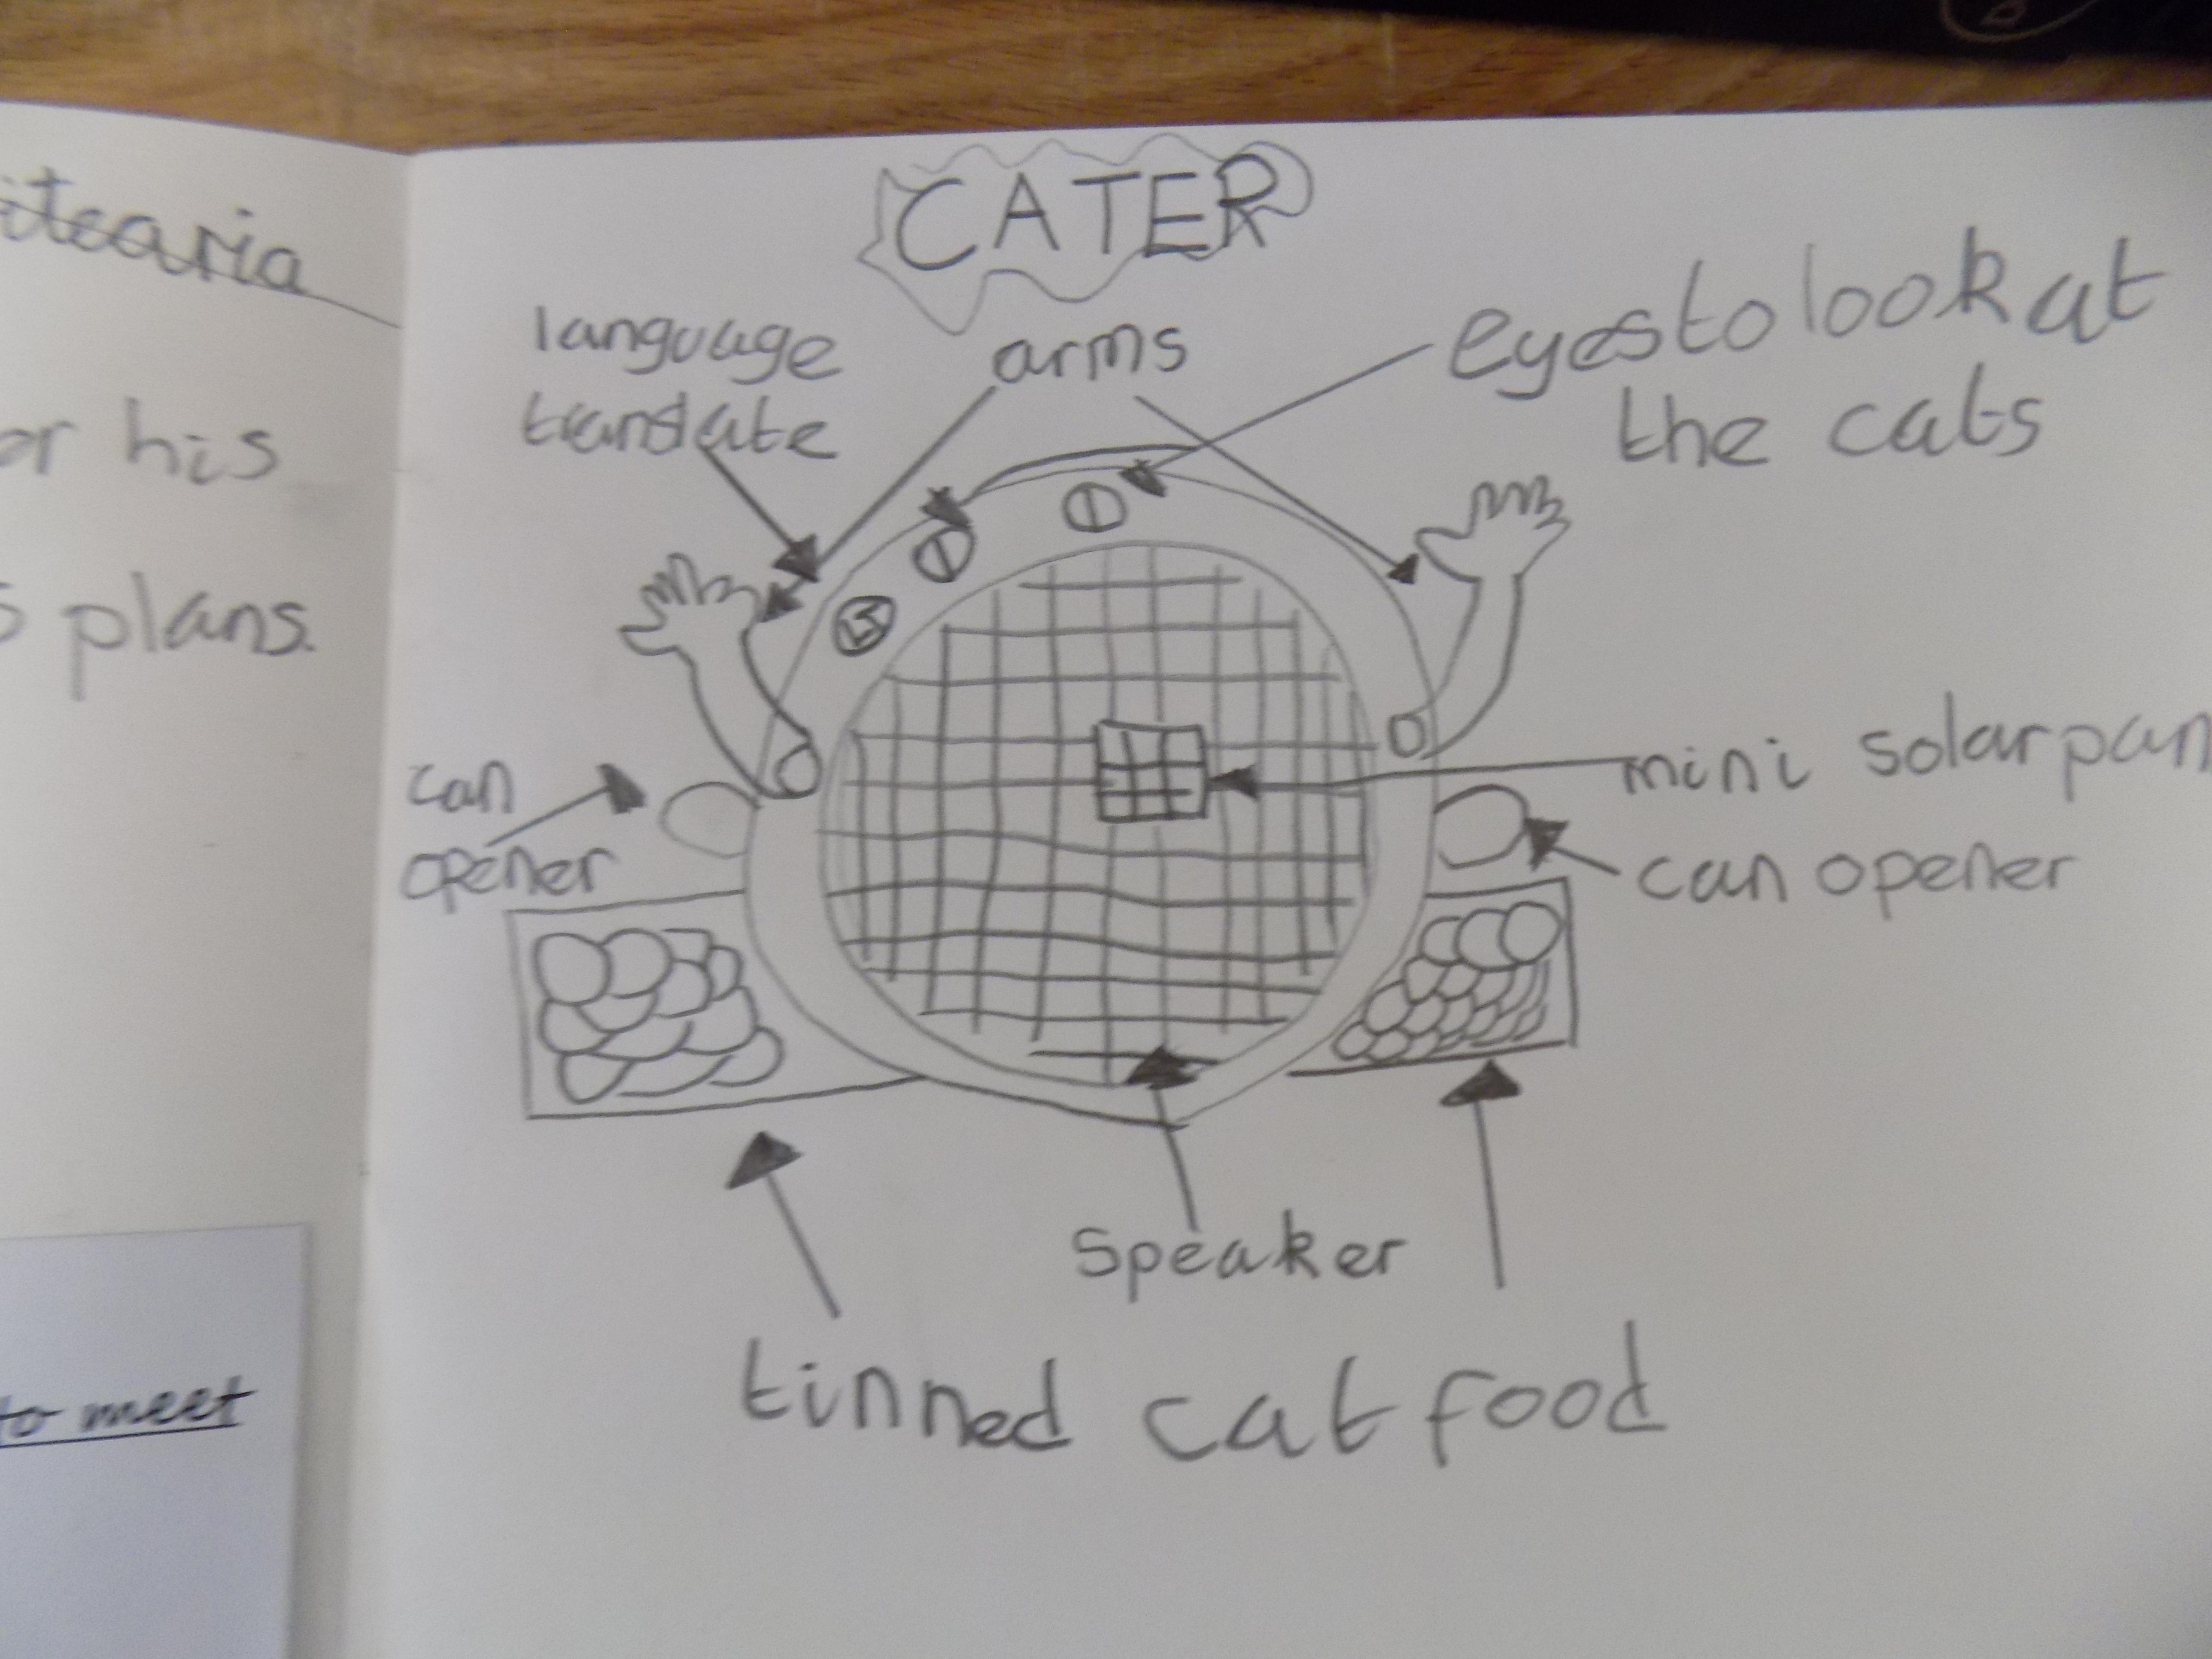 itearia
or his
s plans.
to meet
CATER
language
translate
arms
eyes to look at
the cats
can
opener
mini solar pan
can opener
speaker
tinned cat food